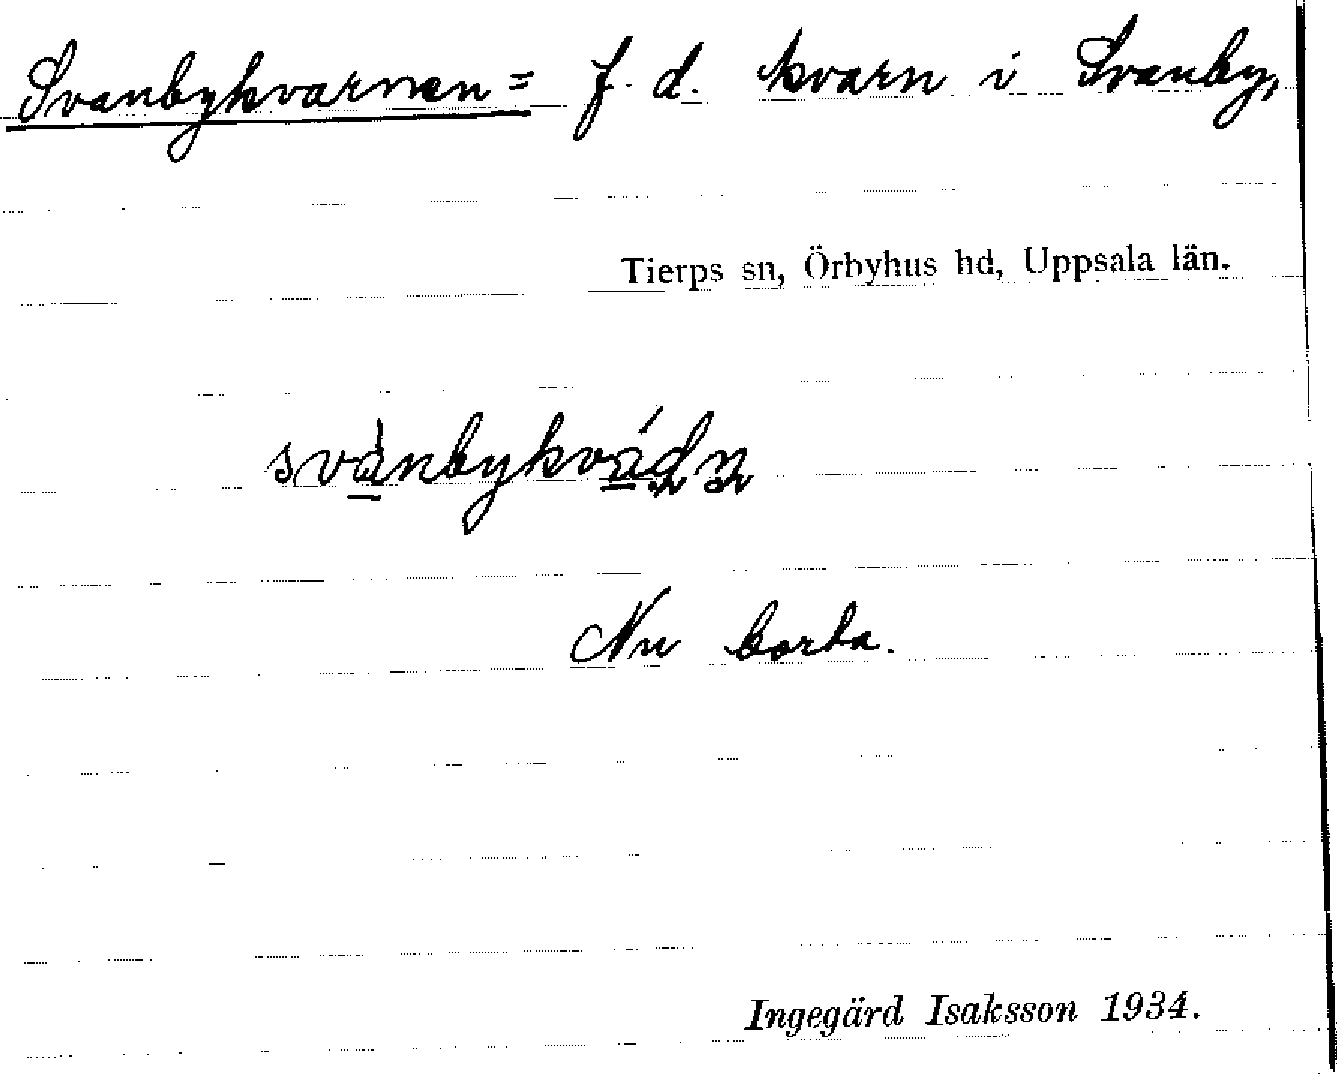 Svanbykvarnen = f. d. kvarn i Svanby,
Tierps sn, Örbyhus hd, Uppsala län.
Nu borta.
Ingegärd Isaksson 1934.